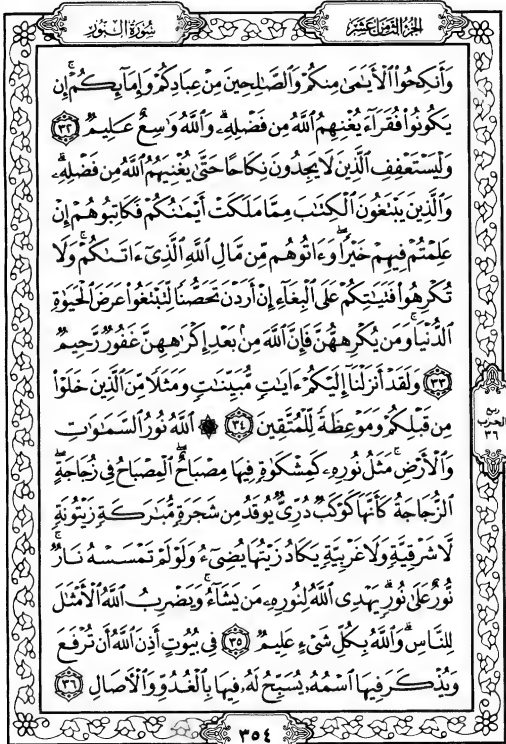 سُورَةُ النُّورِ
الجُزءُ الثَّامِنَ عَشَرَ
وَأَنكِحُوا۟ ٱلْأَيَـٰمَىٰ مِنكُمْ وَٱلصَّـٰلِحِينَ مِنْ عِبَادِكُمْ وَإِمَآئِكُمْ ۚ إِن
يَكُونُوا۟ فُقَرَآءَ يُغْنِهِمُ ٱللَّهُ مِن فَضْلِهِۦ ۗ وَٱللَّهُ وَٰسِعٌ عَلِيمٌ ٣٢
وَلْيَسْتَعْفِفِ ٱلَّذِينَ لَا يَجِدُونَ نِكَاحًا حَتَّىٰ يُغْنِيَهُمُ ٱللَّهُ مِن فَضْلِهِۦ ۗ
وَٱلَّذِينَ يَبْتَغُونَ ٱلْكِتَـٰبَ مِمَّا مَلَكَتْ أَيْمَـٰنُكُمْ فَكَاتِبُوهُمْ إِنْ
عَلِمْتُمْ فِيهِمْ خَيْرًا ۖ وَءَاتُوهُم مِّن مَّالِ ٱللَّهِ ٱلَّذِىٓ ءَاتَىٰكُمْ ۚ وَلَا
تُكْرِهُوا۟ فَتَيَـٰتِكُمْ عَلَى ٱلْبِغَآءِ إِنْ أَرَدْنَ تَحَصُّنًا لِّتَبْتَغُوا۟ عَرَضَ ٱلْحَيَوٰةِ
ٱلدُّنْيَا ۚ وَمَن يُكْرِههُّنَّ فَإِنَّ ٱللَّهَ مِنۢ بَعْدِ إِكْرَٰهِهِنَّ غَفُورٌ رَّحِيمٌ
٣٣ وَلَقَدْ أَنزَلْنَآ إِلَيْكُمْ ءَايَـٰتٍ مُّبَيِّنَـٰتٍ وَمَثَلًا مِّنَ ٱلَّذِينَ خَلَوْا۟
مِن قَبْلِكُمْ وَمَوْعِظَةً لِّلْمُتَّقِينَ ٣٤ ۞ ٱللَّهُ نُورُ ٱلسَّمَـٰوَٰتِ
وَٱلْأَرْضِ ۚ مَثَلُ نُورِهِۦ كَمِشْكَوٰةٍ فِيهَا مِصْبَاحٌ ۖ ٱلْمِصْبَاحُ فِى زُجَاجَةٍ ۖ
ٱلزُّجَاجَةُ كَأَنَّهَا كَوْكَبٌ دُرِّىٌّ يُوقَدُ مِن شَجَرَةٍ مُّبَـٰرَكَةٍ زَيْتُونَةٍ
لَّا شَرْقِيَّةٍ وَلَا غَرْبِيَّةٍ يَكَادُ زَيْتُهَا يُضِىٓءُ وَلَوْ لَمْ تَمْسَسْهُ نَارٌ ۚ
نُّورٌ عَلَىٰ نُورٍ ۗ يَهْدِى ٱللَّهُ لِنُورِهِۦ مَن يَشَآءُ ۚ وَيَضْرِبُ ٱللَّهُ ٱلْأَمْثَـٰلَ
لِلنَّاسِ ۗ وَٱللَّهُ بِكُلِّ شَىْءٍ عَلِيمٌ ٣٥ فِى بُيُوتٍ أَذِنَ ٱللَّهُ أَن تُرْفَعَ
وَيُذْكَرَ فِيهَا ٱسْمُهُۥ يُسَبِّحُ لَهُۥ فِيهَا بِٱلْغُدُوِّ وَٱلْـَٔاصَالِ ٣٦
ربع
الحزب
٣٦
٣٥٤